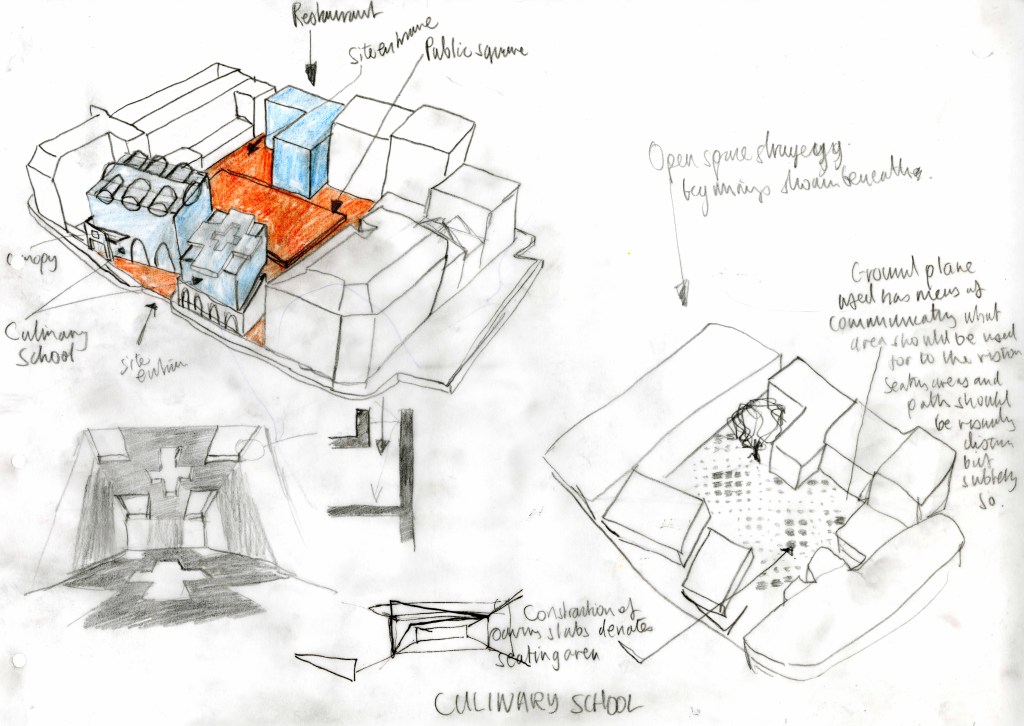 Restaurant
site entrance
Public square
Open space strategy
beginnings shown beneath.
Canopy
Culinary
School
site
Ground plane
used has means of
communicating what
area should be used
for to the visitor
seating areas and
path should
be visually
but
subtlely
so.
Constraction of
slabs denates
seating area
CULINARY SCHOOL